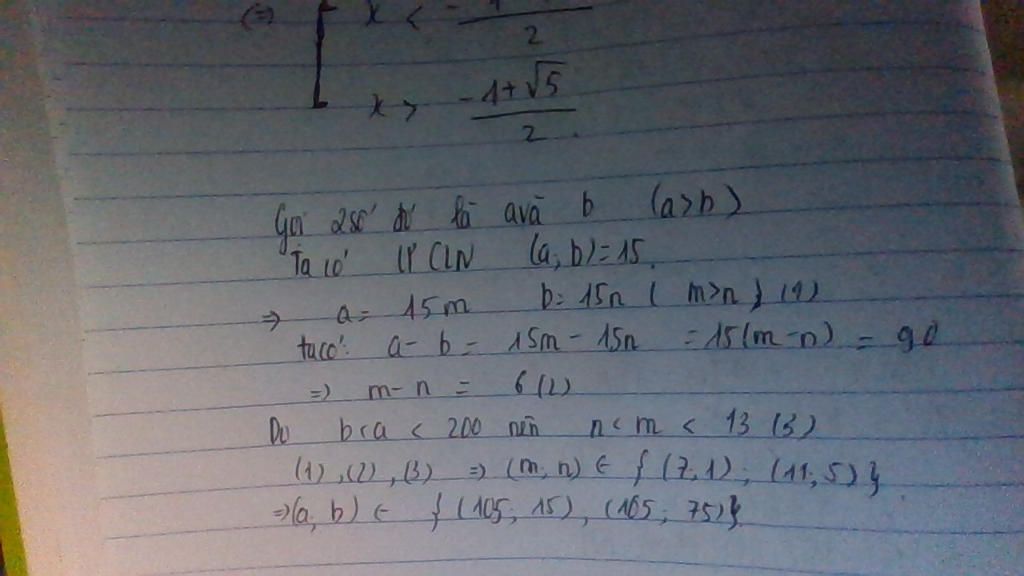 (=) [ x < - 1 / 2
x > -1+√5 / 2
Gọi 2 số đó là a và b (a>b)
Ta có ƯCLN (a,b)=15.
=> a= 15m b= 15n ( m>n ) (1)
ta có: a- b = 15m - 15n = 15(m-n) = 90
=> m-n = 6 (2)
Do b<a < 200 nên n<m < 13 (3)
(1),(2),(3) => (m,n) ∈ { (7;1); (11;5)}
=>(a,b) ∈ { (105; 15), (165; 75)}